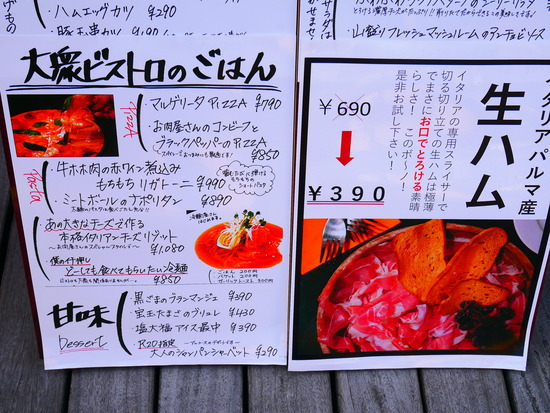 ・ハムエッグカツ ¥290
大衆ビストロのごはん
Pizza
・マルゲリータ PIZZA ¥790
・お肉屋さんのコンビーフと
ブラックペッパーのPIZZA
¥850
Pasta
・牛ホホ肉の赤ワイン煮込み
もちもちリガトーニ ¥990
・ミートボールのナポリタン
¥890
あの大きなチーズで作る
本格イタリアンチーズリゾット
¥1,080
僕のイチ押し
どーしても食べてもらいたい冷麺
¥850
ごはん 200円
バケット 200円
ガーリックトースト 300円
甘味
Dessert
・黒ごまのブランマンジェ ¥390
・宝玉たまごのブリュレ ¥430
・塩大福アイス最中 ¥390
・R20指定
大人のシャンパンシャーベット ¥290
・山盛りフレッシュマッシュルームのアンチョビソース
イタリアパルマ産
生ハム
イタリアの専用スライサーで
切る切り立ての生ハムは極薄
でまさにお口でとろける素晴
らしさ！このボリュームで
是非お試し下さい！
¥690
¥390